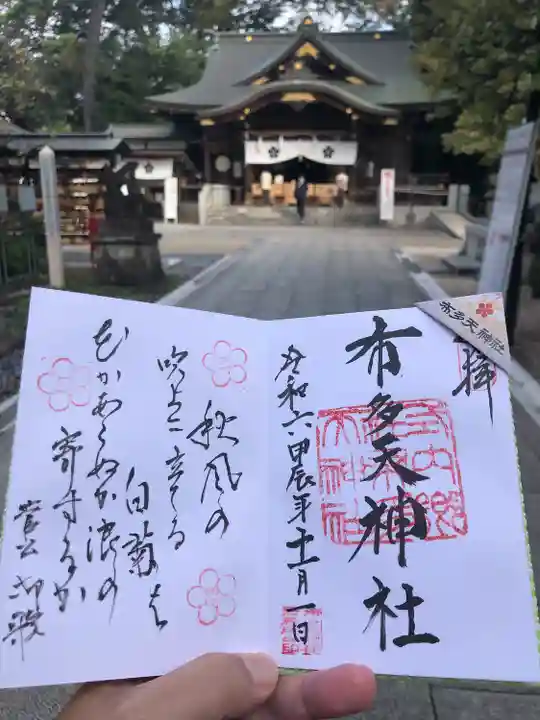 布多天神社
奉拝
布多天神社
令和六甲辰年十一月一日
秋風の
吹上に立てる
白菊は
花かあらぬか浪の
寄するか
菅公御歌